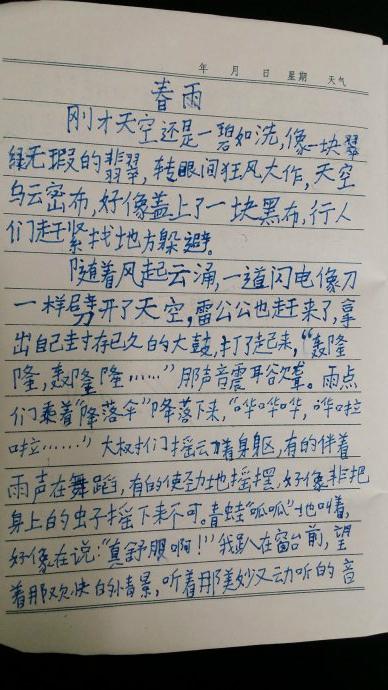 年 月 日 星期 天气
春雨
刚才天空还是一碧如洗,像一块翠
绿无瑕的翡翠,转眼间狂风大作,天空
乌云密布,好像盖上了一块黑布,行人
们赶紧找地方躲避。
随着风起云涌,一道闪电像刀
一样劈开了天空,雷公公也赶来了,拿
出自己封存已久的大鼓,打了起来,“轰隆
隆,轰隆隆……”那声音震耳欲聋。雨点
们乘着“降落伞”降落下来,“哗哗哗,哗啦
啦……”大树们摇动着身躯,有的伴着
雨声在舞蹈,有的使劲地摇摆,好像非把
身上的虫子摇下来不可。青蛙“呱呱”地叫着,
好像在说:“真舒服啊!”我趴在窗台前,望
着那欢快的情景,听着那美妙又动听的音